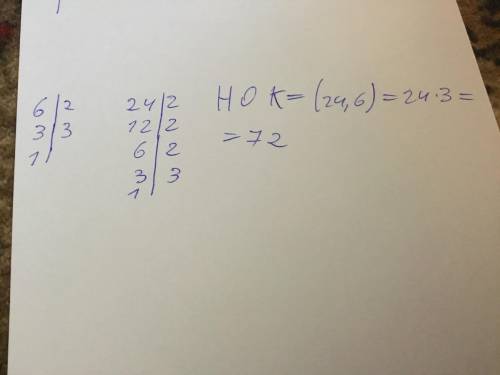 6|2
3|3
1|
24|2
12|2
6|2
3|3
1|
НОК=(24,6)=24·3=
=72